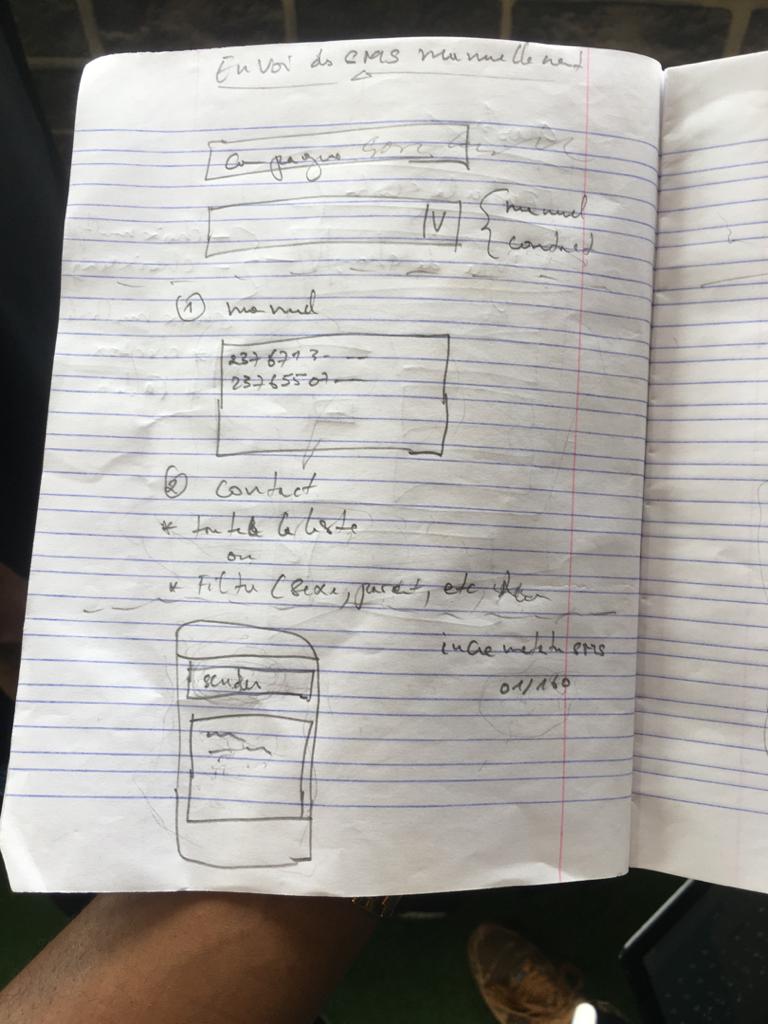 Envoi de SMS manuellement
Campagne
V
manuel
contact
① manuel
2376713- --
23765507---
② contact
* toute la liste
ou
* Filtre (sexe, parent, etc
incremetetu SMS
01/160
sender